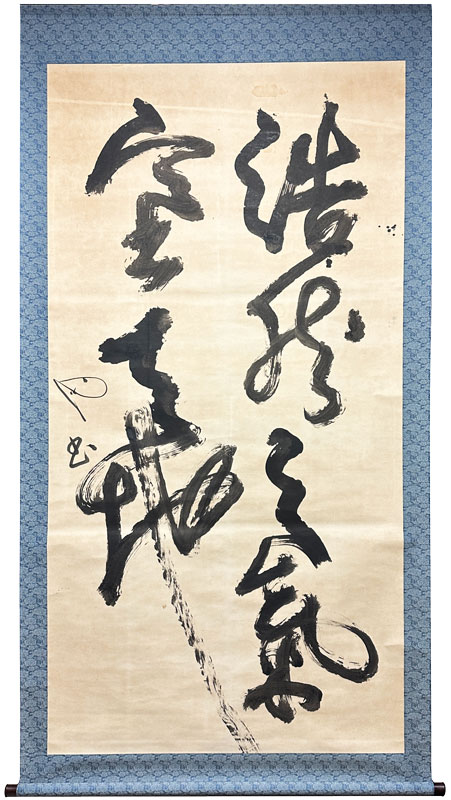 浩然之氣
塞天地
書